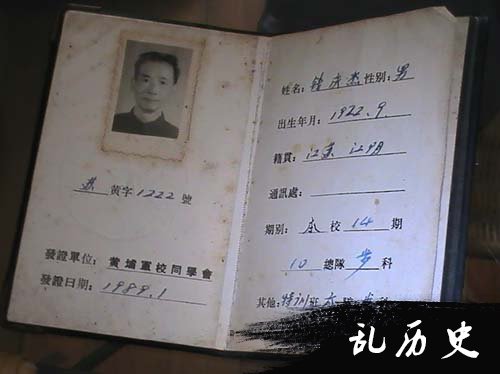 黄字1222號
發證單位：黄埔軍校同學會
發證日期：1989.1
姓名： 性别：男
出生年月：1922.9.
籍貫：江
通訊處：
期别：本校14期
10總隊步科
其他：特训班
乱历史